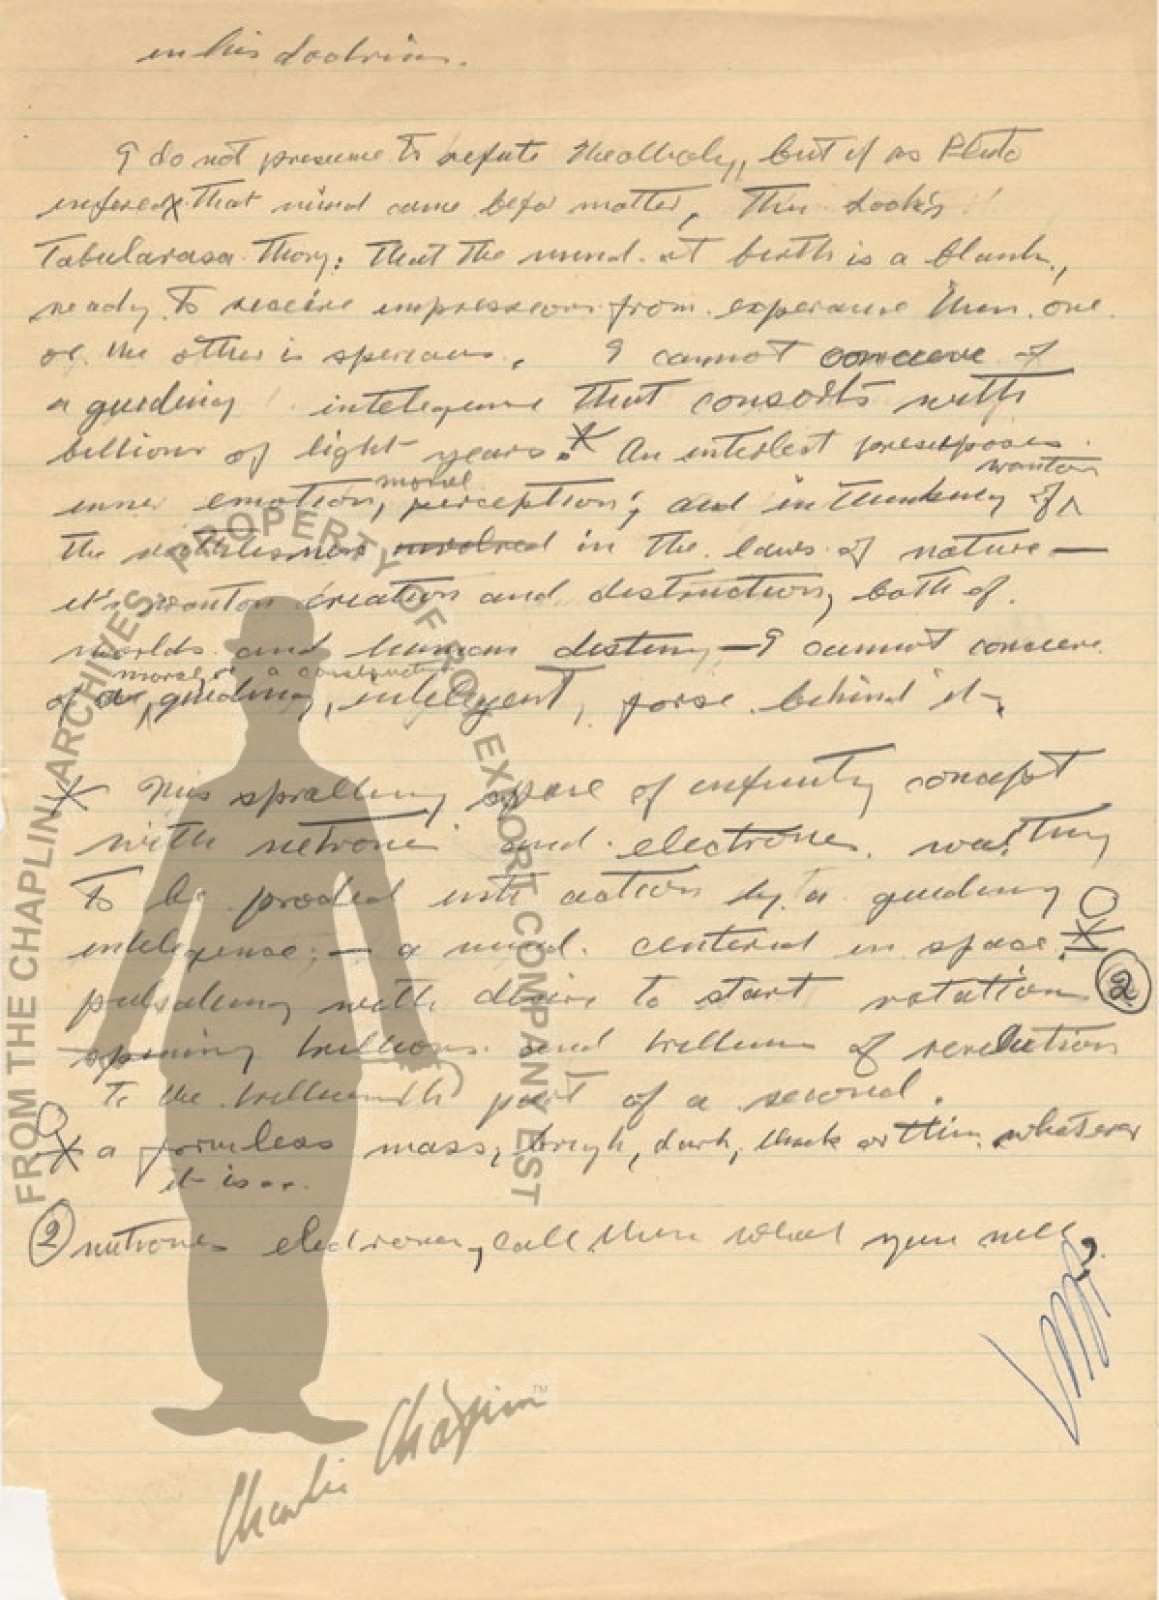 in his doctrine.
I do not presume to refute theology, but if as Plato
infered that mind came befor matter, then Lock's
Tabularasa Thory: that the mind at birth is a blank,
ready to receive impressions from experience then one
or the other is
I cannot conceive of
a guiding intelegence that consorts with
billions of light years. * An interlect presupposes
moral
wanton
inner emotion, perception; and in thinking of
the involved in the laws of nature —
it's wanton creation and destruction, both of
worlds and human destiny — I cannot conceive
moral or a constructive
of a guiding, intelegent, forse behind it.
* This spralling space of infinity concept
with netrones and electrones waiting
to be proded into action by a guiding
intelegence; — a mind centered in space *
pulsating with desire to start rotation 2
spining trillions and trillions of revelution
to the trillionth part of a second.
* a formless mass, bright, dark, thick or thin whatever
it is or.
2 nutrones electrones, call them what you will?
FROM THE CHAPLIN ARCHIVES PROPERTY OF ROY EXPORT COMPANY EST
Charlie Chaplin TM